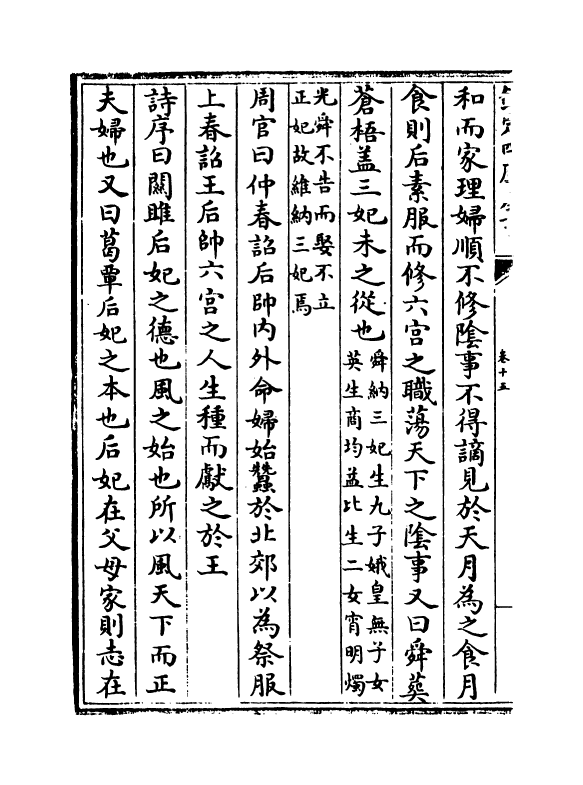 卷十五
和而家理婦順不修陰事不得謫見於天月為之食月
食則后素服而修六宫之職蕩天下之陰事又曰舜葬
蒼梧盖三妃未之從也
舜納三妃生九子娥皇無子女
英生商均益比生二女宵明燭
光舜不告而娶不立
正妃故維納三妃焉
周官曰仲春詔后帥内外命婦始蠶於北郊以為祭服
上春詔王后帥六宫之人生種而獻之於王
詩序曰關雎后妃之德也風之始也所以風天下而正
夫婦也又曰葛覃后妃之本也后妃在父母家則志在